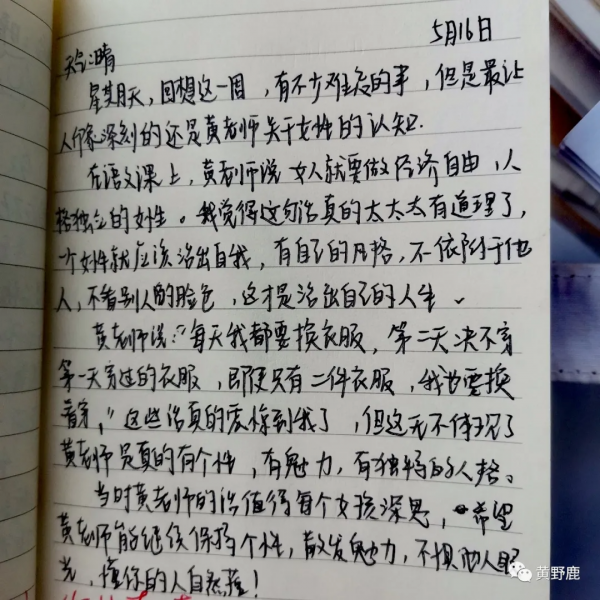 5月16日
天气:晴
星期天,回想这一周,有不少难忘的事,但是最让
人印象深刻的还是黄老师关于女性的认知.
在语文课上,黄老师说女人就要做经济自由,人
格独立的女性。我觉得这句话真的太太太有道理了,
一个女性就应该活出自我,有自己的风格,不依附于他
人,不看别人的脸色,这才是活出自己的人生.
黄老师说:“每天我都要换衣服,第二天决不穿
第一天穿过的衣服,即便只有二件衣服,我也要换
着穿,”这些话真的震惊到我了,但这无不体现了
黄老师是真的有个性,有魅力,有独特的人格。
当时黄老师的话值得每个女孩深思,希望
黄老师能继续保持个性,散发魅力,不惧他人眼
光,懂你的人自然懂!
黄野鹿